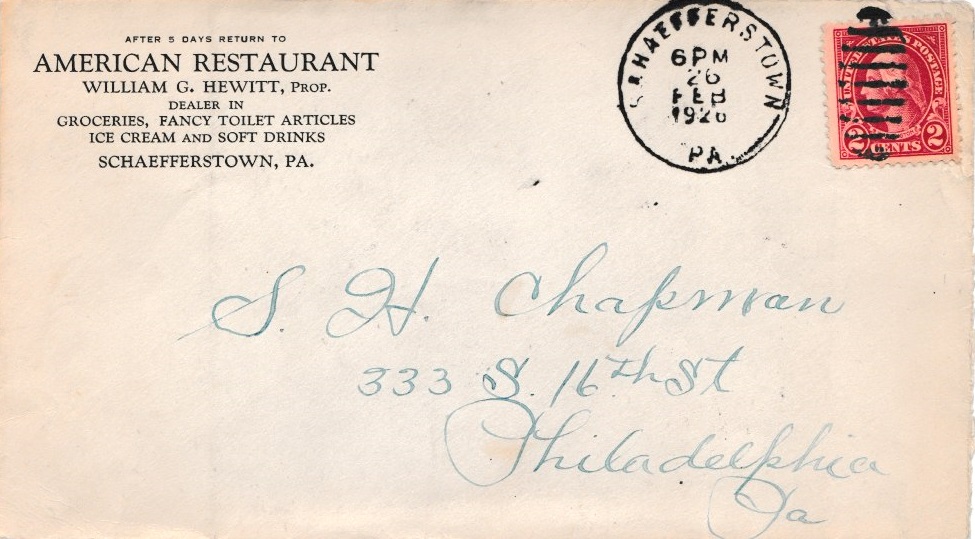 AFTER 5 DAYS RETURN TO
AMERICAN RESTAURANT
WILLIAM G. HEWITT, PROP.
DEALER IN
GROCERIES, FANCY TOILET ARTICLES
ICE CREAM AND SOFT DRINKS
SCHAEFFERSTOWN, PA.
SCHAEFFERSTOWN
6 PM
26
FEB
1926
PA.
UNITED STATES POSTAGE
2 CENTS 2
S. H. Chapman
333 S. 16th St
Philadelphia
Pa